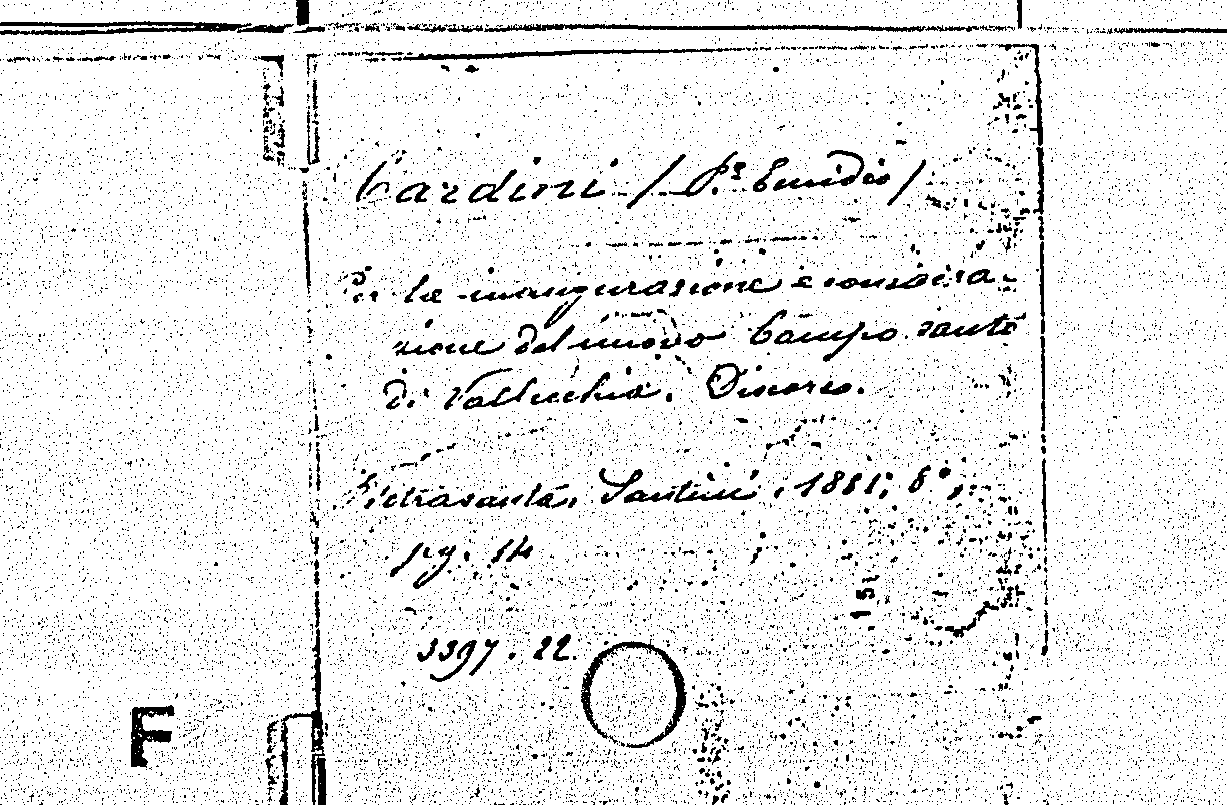 Cardini / P.e Emidio /
Per la inaugurazione e consacra-
zione del nuovo Campo santo
di Vallecchia. Discorso.
Pietrasanta, Santini, 1881; 8°,
pg. 14
3397. 22
15.
F